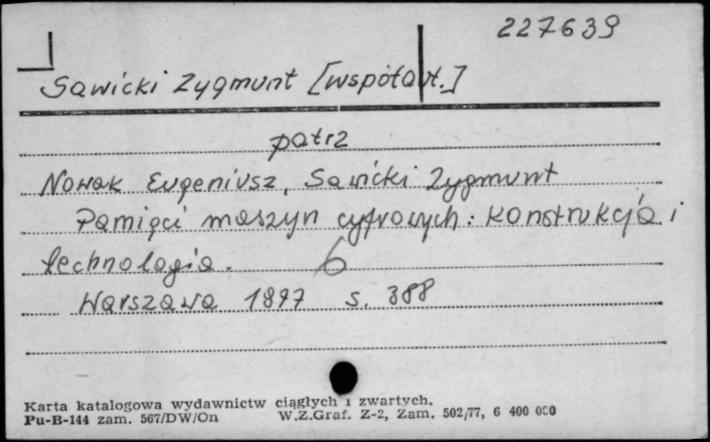 227639
Sawicki Zygmunt [współaut.]
patrz
Nowak Eugeniusz, Sawicki Zygmunt
Pamięci maszyn cyfrowych: Konstrukcja i
technologia. 6
Warszawa 1897 s. 388
Karta katalogowa wydawnictw ciągłych i zwartych.
Pu-B-144 zam. 567/DW/On W.Z.Graf. Z-2, Zam. 502/77, 6 400 000